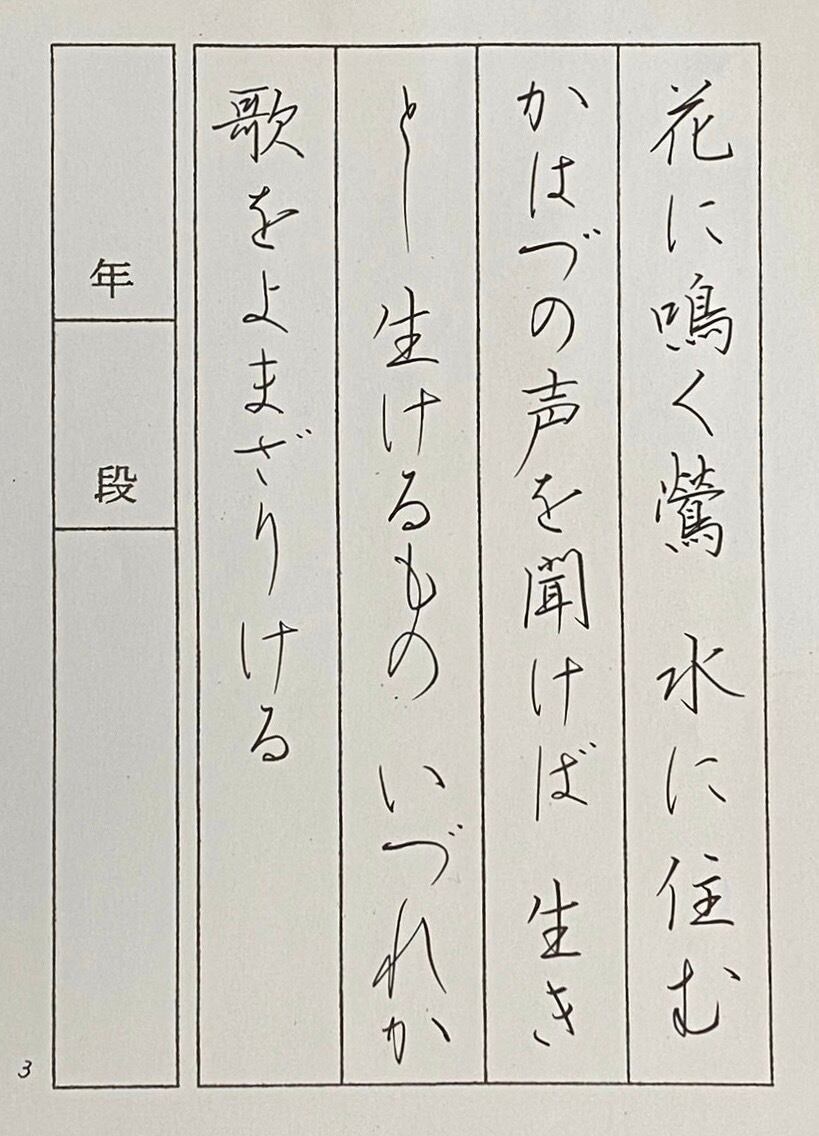 花に鳴く鶯 水に住む
かはづの声を聞けば 生き
とし生けるもの いづれか
歌をよまざりける
年
段
3